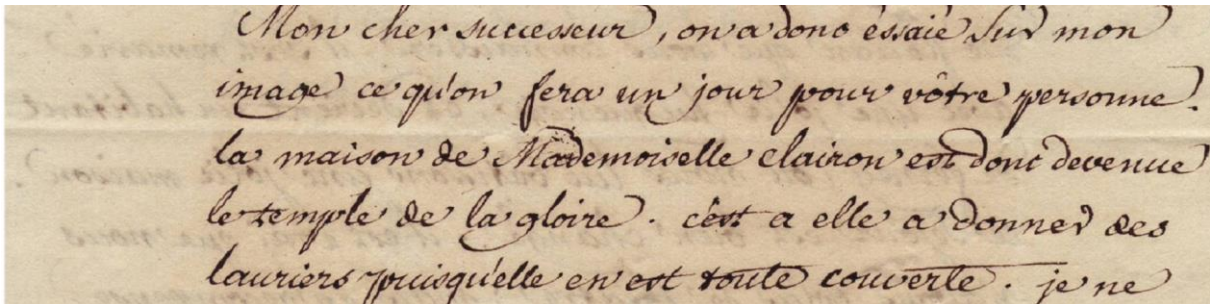 Mon cher successeur, on a donc éssaié sur mon
image ce qu'on fera un jour pour vôtre personne.
la maison de Mademoiselle clairon est donc devenue
le temple de la gloire. c'est a elle a donner des
lauriers puisqu'elle en est toute couverte. je ne